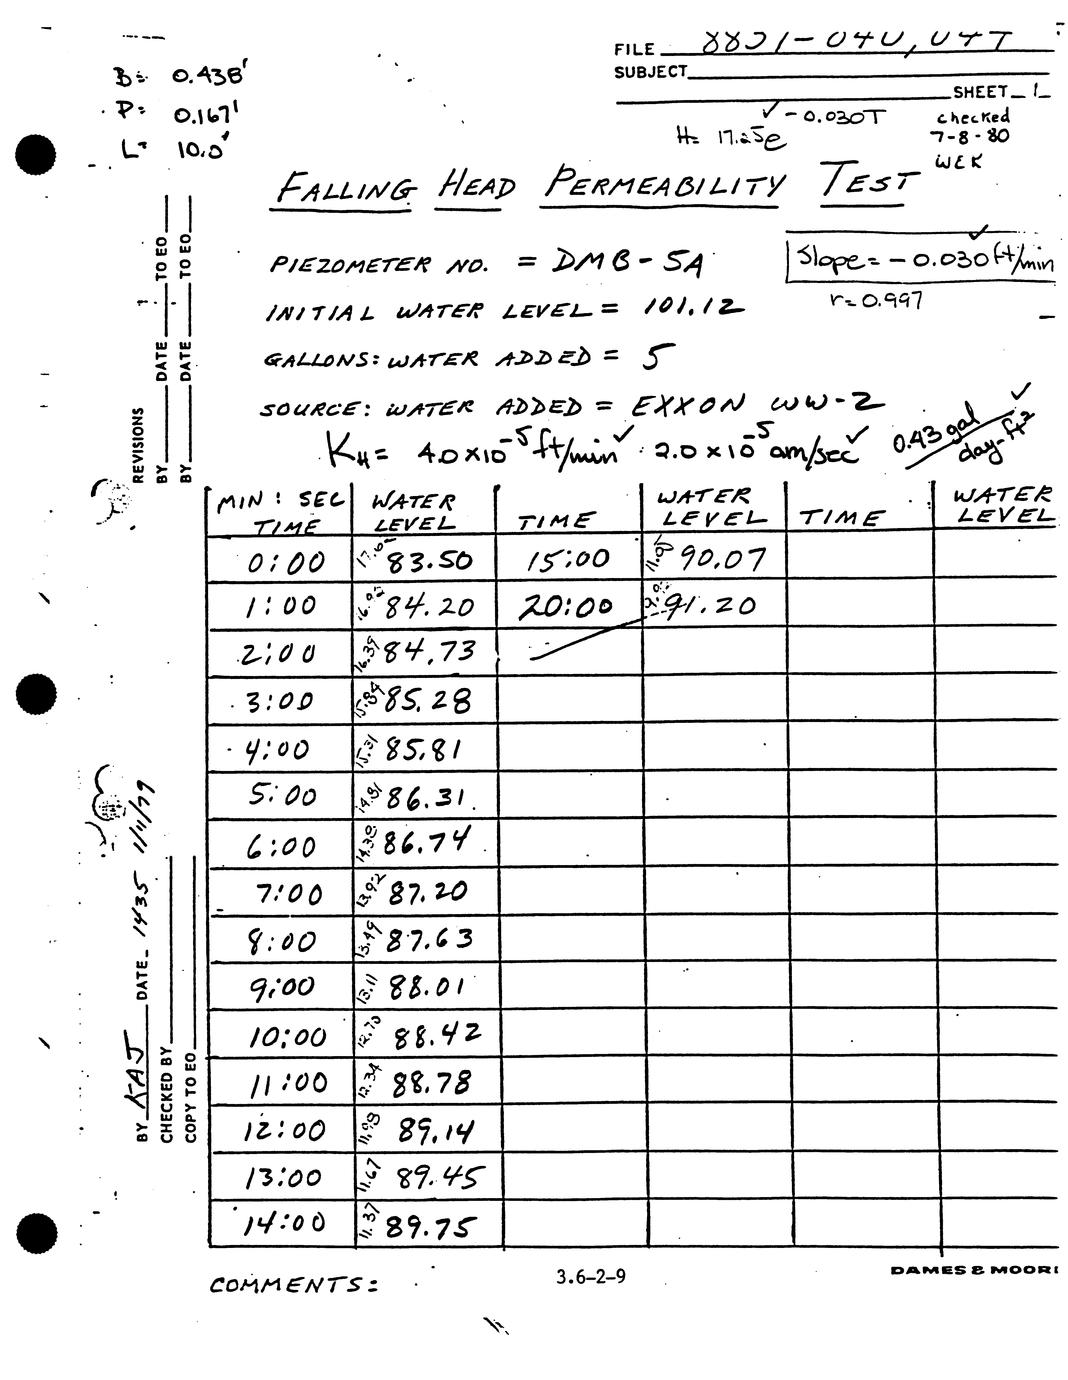 B= 0.438'
P= 0.167'
L= 10.0'
FILE 8821-040, 04T
SUBJECT
SHEET 1
✓ -0.030T
H= 17.25e
checked
7-8-80
WEK
FALLING HEAD PERMEABILITY TEST
PIEZOMETER NO. = DMB-5A
Slope = -0.030 ft/min ✓
r=0.997
INITIAL WATER LEVEL = 101.12
GALLONS: WATER ADDED = 5
SOURCE: WATER ADDED = EXXON WW-2
KH = 4.0 x 10^-5 ft/min ✓ 2.0 x 10^-5 cm/sec ✓ 0.43 gal/day-ft² ✓
MIN : SEC TIME WATER LEVEL TIME WATER LEVEL TIME WATER LEVEL
0:00 83.50 15:00 90.07
1:00 16.92 84.20 20:00 91.20
2:00 16.39 84.73
3:00 15.84 85.28
4:00 15.31 85.81
5:00 14.81 86.31
6:00 14.38 86.74
7:00 13.92 87.20
8:00 13.49 87.63
9:00 13.11 88.01
10:00 12.70 88.42
11:00 12.34 88.78
12:00 11.98 89.14
13:00 11.67 89.45
14:00 11.37 89.75
COMMENTS:
3.6-2-9
DAMES & MOORE
REVISIONS
BY DATE TO EO
BY DATE TO EO
BY KAJ DATE 1435 1/11/79
CHECKED BY
COPY TO EO